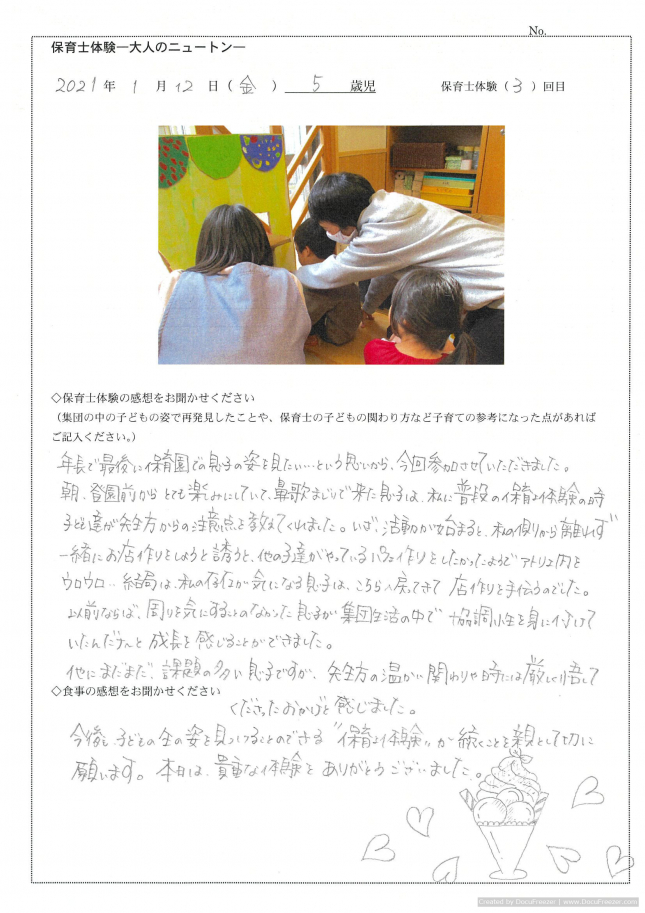 No.
保育士体験―大人のニュートン―
2021年 1月12日(金) 5歳児 保育士体験(3)回目
◇保育士体験の感想をお聞かせください
(集団の中の子どもの姿で再発見したことや、保育士の子どもの関わり方など子育ての参考になった点があれば
ご記入ください。)
年長で最後に保育園での息子の姿を見たい…という思いから、今回参加させていただきました。
朝、登園前からとても楽しみにしていて、鼻歌まじりで来た息子は、私に普段の保育士体験の時
子ども達が先生方からの注意点を教えてくれました。いざ、活動が始まると、私の側から離れず
一緒にお店作りをしようと誘うと、他の子達がやっている作りをしたかったようでアトリエ内を
ウロウロ… 結局は、私の存在が気になる息子は、こちらへ戻ってきて 店作りを手伝うのでした。
以前ならば、周りを気にすることのなかった息子が集団生活の中で 協調性を身に付けて
いたんだナァと成長を感じることができました。
他にまだまだ、課題の多い息子ですが、先生方の温かい関わりや時には厳しく悟して
◇食事の感想をお聞かせください
くださったおかげと感じました。
今後も子どもの生の姿を見つけることのできる "保育士体験" が続くことを親として切に
願います。 本日は、貴重な体験を ありがとうございました。
Created by DocuFreezer | www.DocuFreezer.com |